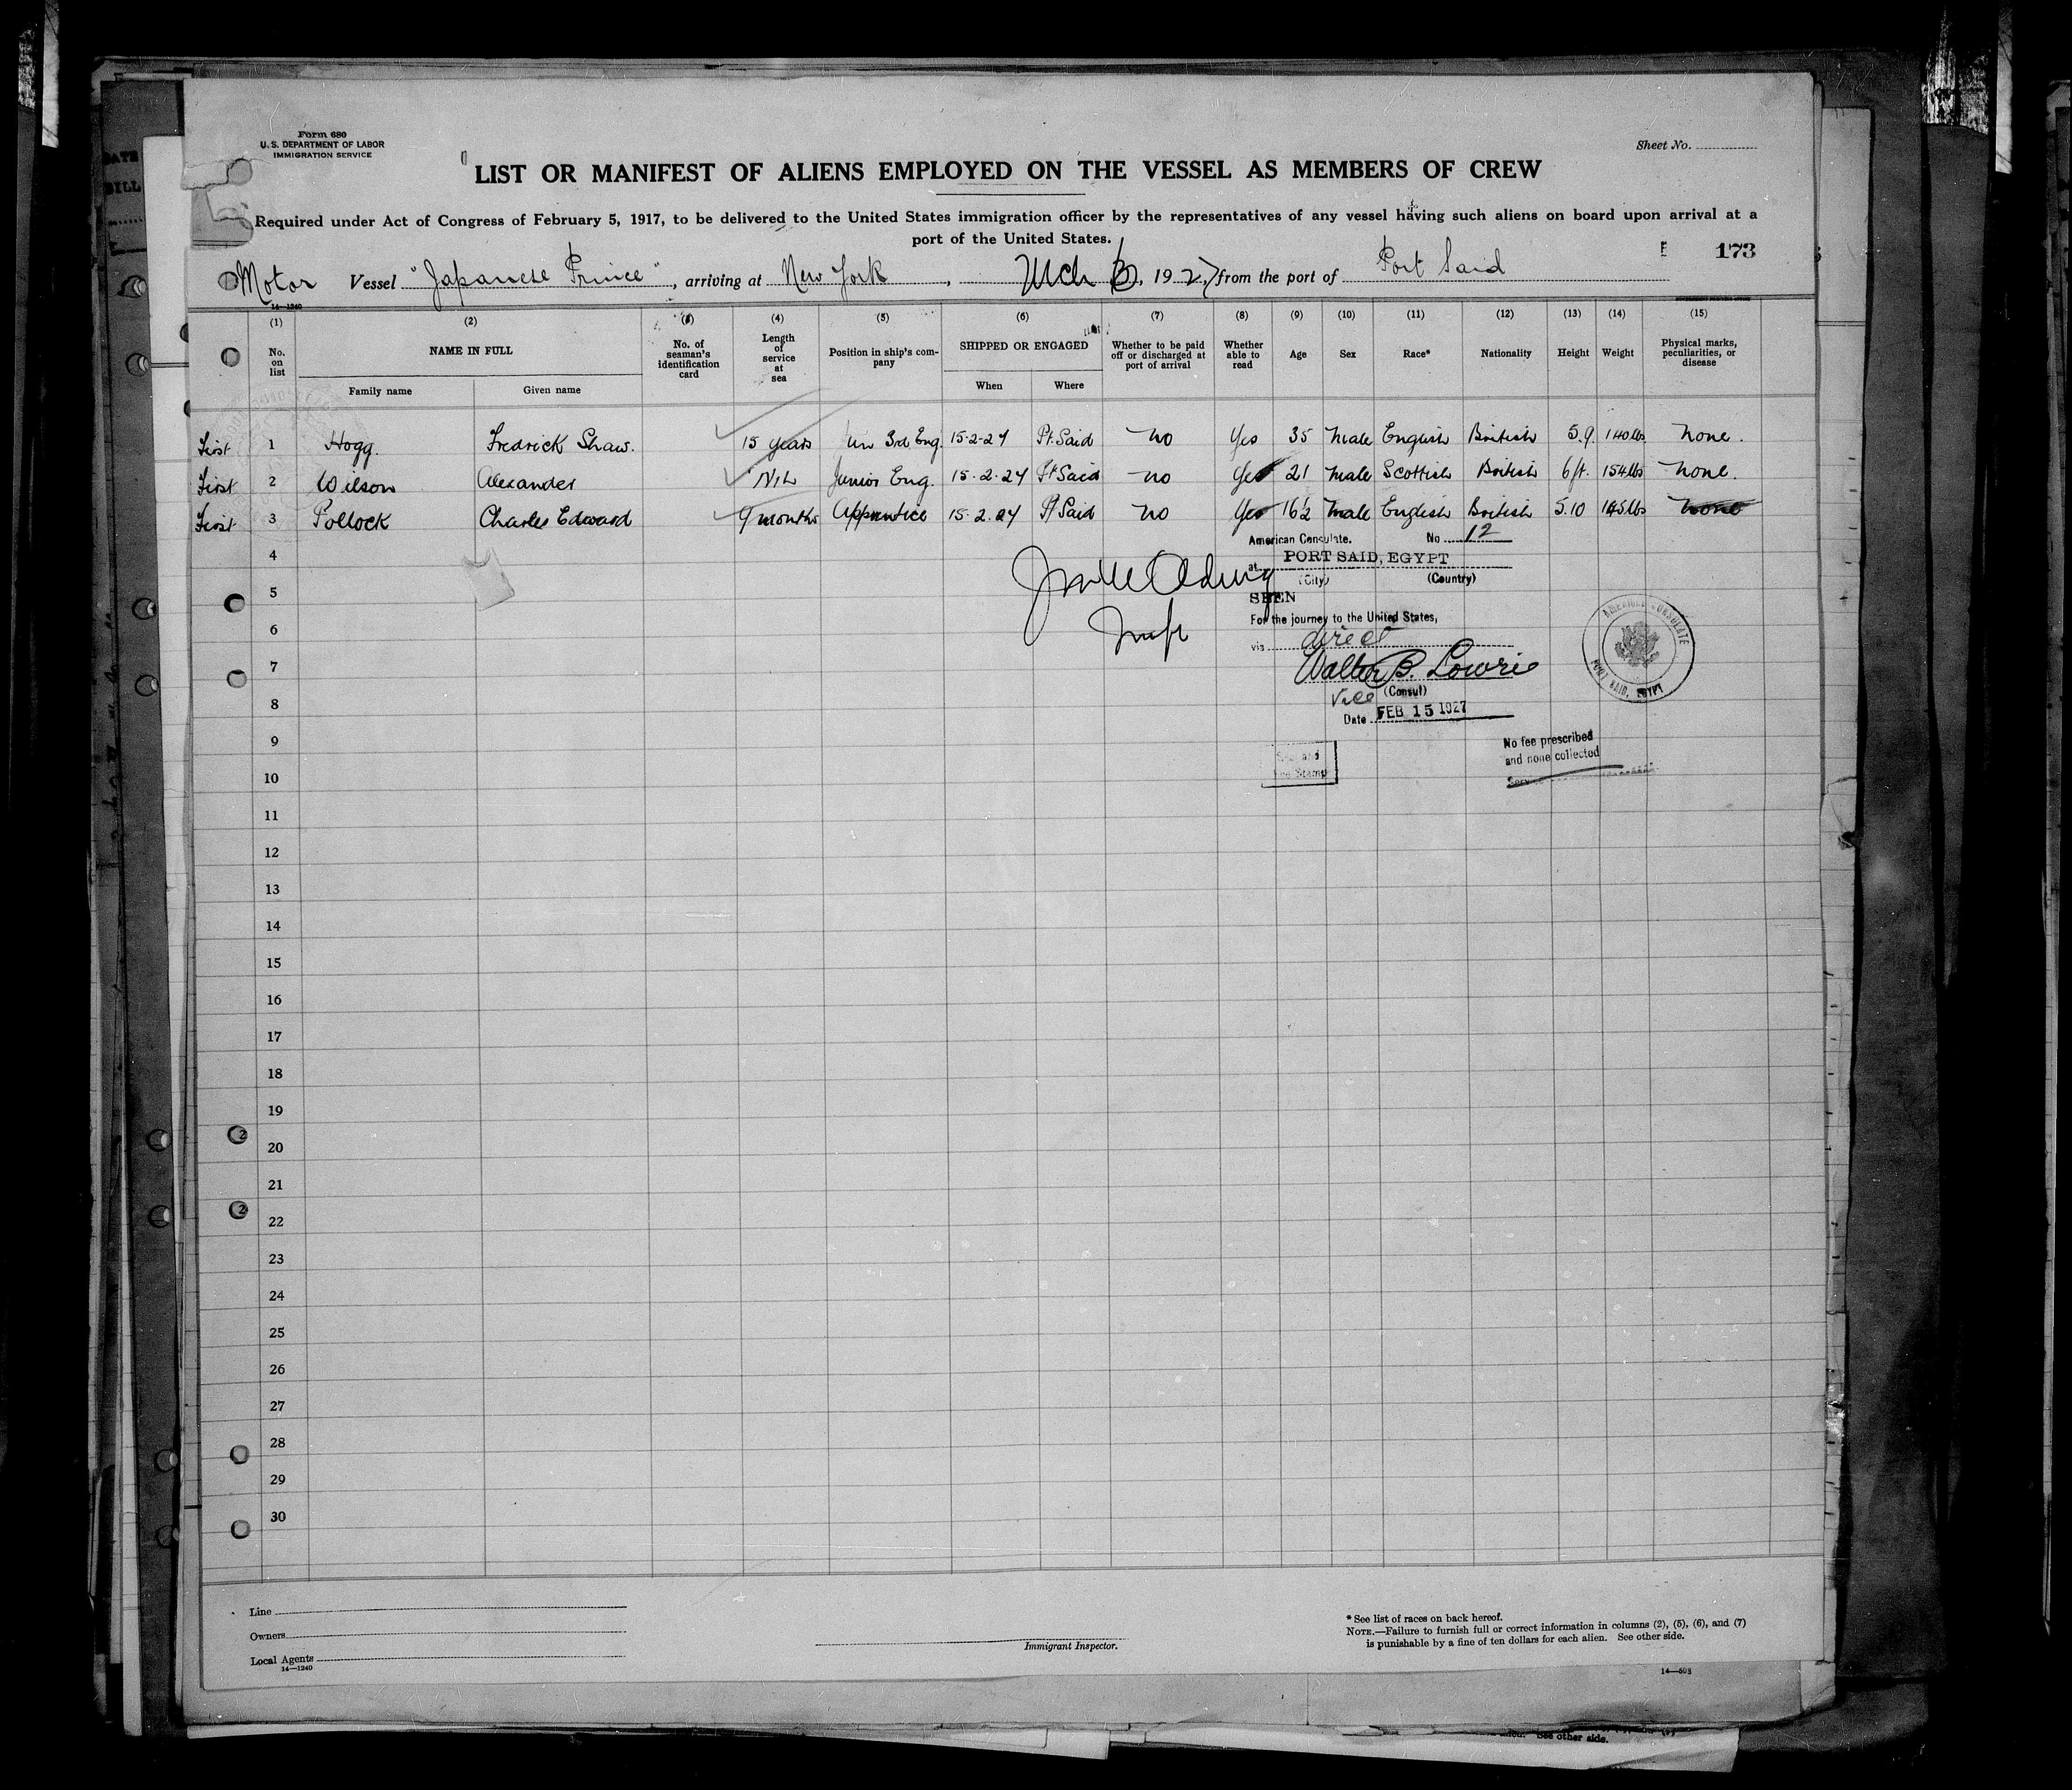 Form 680
U. S. DEPARTMENT OF LABOR
IMMIGRATION SERVICE
Sheet No.
LIST OR MANIFEST OF ALIENS EMPLOYED ON THE VESSEL AS MEMBERS OF CREW
Required under Act of Congress of February 5, 1917, to be delivered to the United States immigration officer by the representatives of any vessel having such aliens on board upon arrival at a
port of the United States.
173
Motor Vessel "Japanese Prince", arriving at New York, Mch, 1927, from the port of Port Said
14—1240
(1) (2) (3) (4) (5) (6) (7) (8) (9) (10) (11) (12) (13) (14) (15)
No. on list NAME IN FULL No. of seaman's identification card Length of service at sea Position in ship's company SHIPPED OR ENGAGED Whether to be paid off or discharged at port of arrival Whether able to read Age Sex Race* Nationality Height Weight Physical marks, peculiarities, or disease
Family name Given name When Where
First 1 Hogg. Fredrick Shaw. 15 years Jun 3rd Eng. 15-2-27 Pt. Said no Yes 35 male English British 5.9 140 lbs none.
First 2 Wilson Alexander Nil Junior Eng. 15-2-27 Pt Said no Yes 21 male Scottish British 6 ft. 154 lbs none.
First 3 Pollock Charles Edward 9 months Apprentice 15.2.27 Pt Said no Yes 16½ male English British 5.10 145 lbs none
4
5
6
7
8
9
10
11
12
13
14
15
16
17
18
19
20
21
22
23
24
25
26
27
28
29
30
American Consulate. No. 12
at PORT SAID, EGYPT
(City) (Country)
SEEN
For the journey to the United States,
via direct
Walter B. Lowrie
Vice (Consul)
Date FEB 15 1927
AMERICAN CONSULATE
PORT SAID, EGYPT.
Fee Stamp
No fee prescribed
and none collected
Line
Owners
Local Agents
14—1240
Immigrant Inspector.
* See list of races on back hereof.
NOTE.—Failure to furnish full or correct information in columns (2), (5), (6), and (7)
is punishable by a fine of ten dollars for each alien. See other side.
See other side.